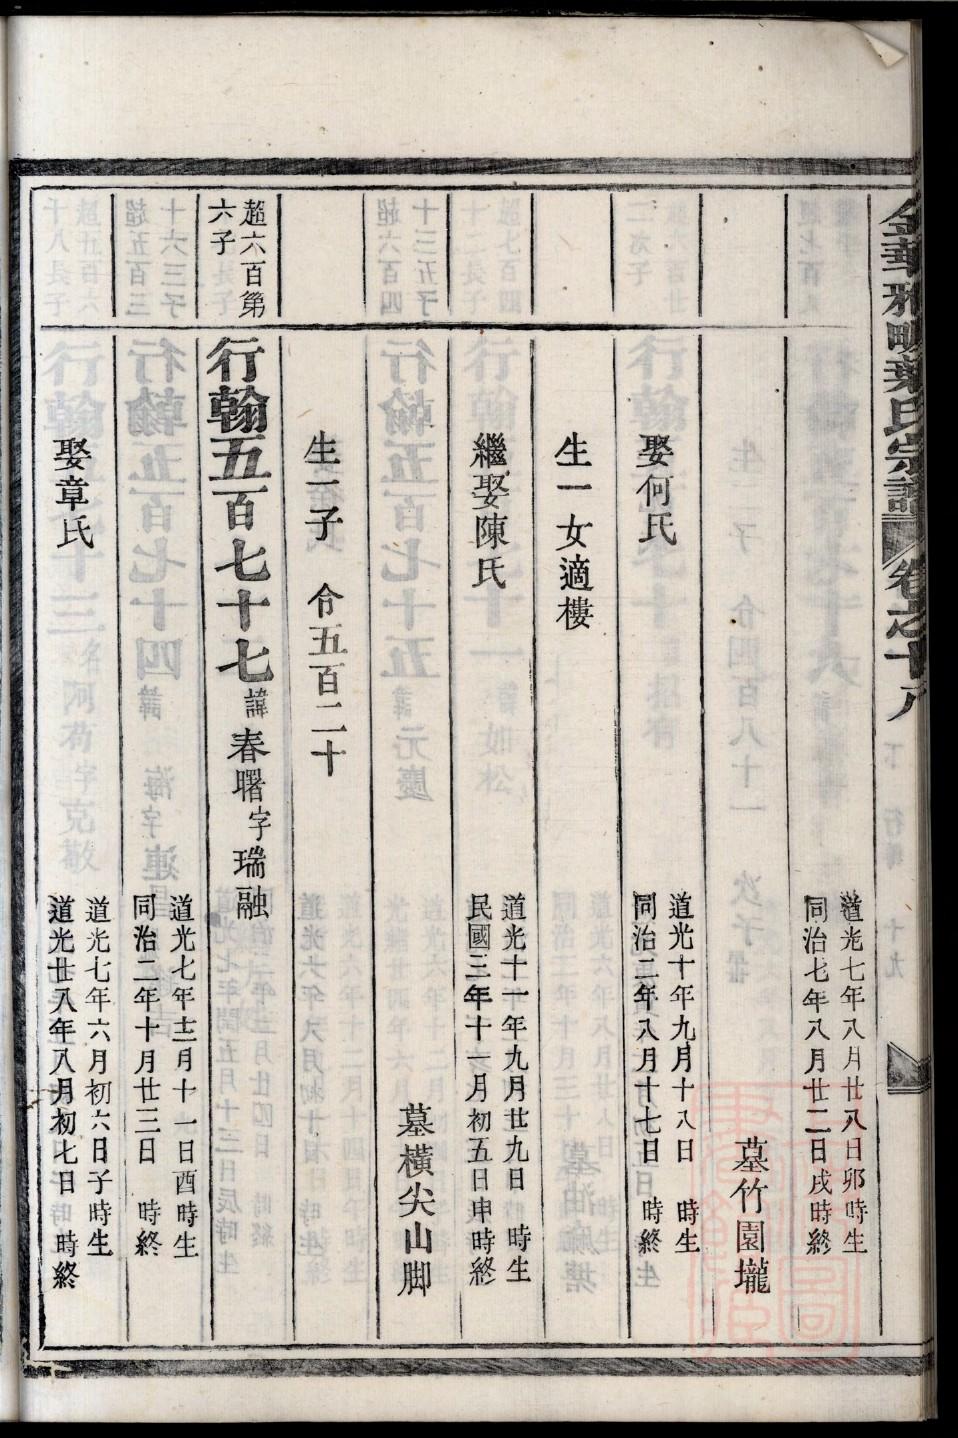 金華雅畈葉氏宗譜 卷之十八
道光七年八月廿八日卯時生
同治七年八月廿二日戌時終
墓竹園壠
娶何氏 道光十年九月十八日 時生
同治二年八月十七日 時終
生一女適樓
繼娶陳氏 道光十一年九月廿九日 時生
民國三年十一月初五日申時終
墓橫尖山脚
生一子 令五百二十
超六百第
六子
行翰五百七十七 諱春曙字瑞融
道光七年十二月十一日酉時生
同治二年十月廿三日 時終
娶章氏 道光七年六月初六日子時生
道光廿八年八月初七日 時終